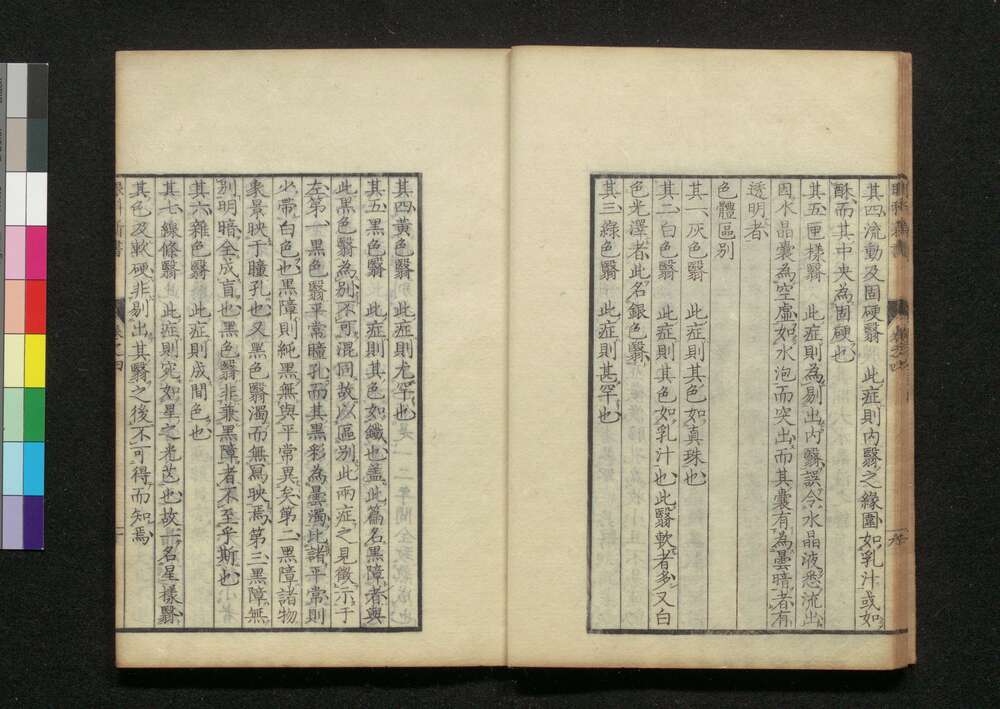 其四流動及固硬翳　此症則内翳之縁圍如乳汁或如
酥而其中央為固硬也
其五匣様翳　此症則為剔出内翳誤令水晶液悉流出
因水晶囊為空虚如水泡而突出而其囊有為曇暗者有
透明者
色體區别
其一灰色翳　此症則其色如真珠也
其二白色翳　此症則其色如乳汁也此翳軟者多又白
色光澤者此名銀色翳
其三緑色翳　此症則甚罕也
其四黄色翳　此症則尤罕也
其五黒色翳　此症則其色如鐵也蓋此篇名黒障者與
此黒色翳為别不可混同故以區别此兩症之見徴示于
左第一黒色翳平常瞳孔而其黒彩為曇濁比諸平常則
少帶白色也黒障則純黒無與平常異矣第二黒障諸物
象景映于瞳孔也又黒色翳濁而無寫映焉第三黒障無
别明暗全成盲也黒色翳非兼黒障者不至乎斯也
其六雜色翳　此症則成間色也
其七線條翳　此症則宛如星之光芒也故一名星様翳
其色及軟硬非剔出其翳之後不可得而知焉
眼科新書　卷之四